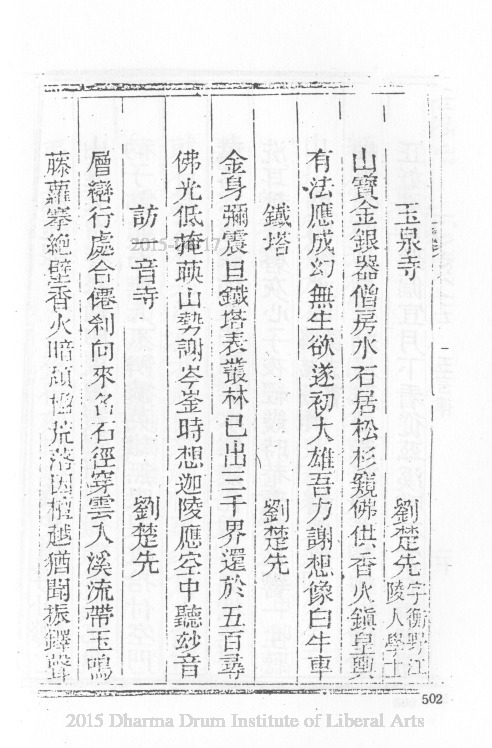 玉泉寺　劉楚先字衡野江陵人學士
山寶金銀器僧房水石居松杉窺佛供香火鎮皇輿
有法應成幻無生欲遂初大雄吾力謝想像白牛車
鐵塔　劉楚先
金身彌震旦鐵塔表叢林已出三千界還於五百尋
佛光低掩映山勢謝岑崟時想迦陵應空中聽玅音
訪 音寺　劉楚先
層巒行處合僊刹向來名石徑穿雲入溪流帶玉鳴
藤蘿搴絶壁香火暗頹 荒落因檀越猶聞振鐸聲
502
2015 Dharma Drum Institute of Liberal Arts